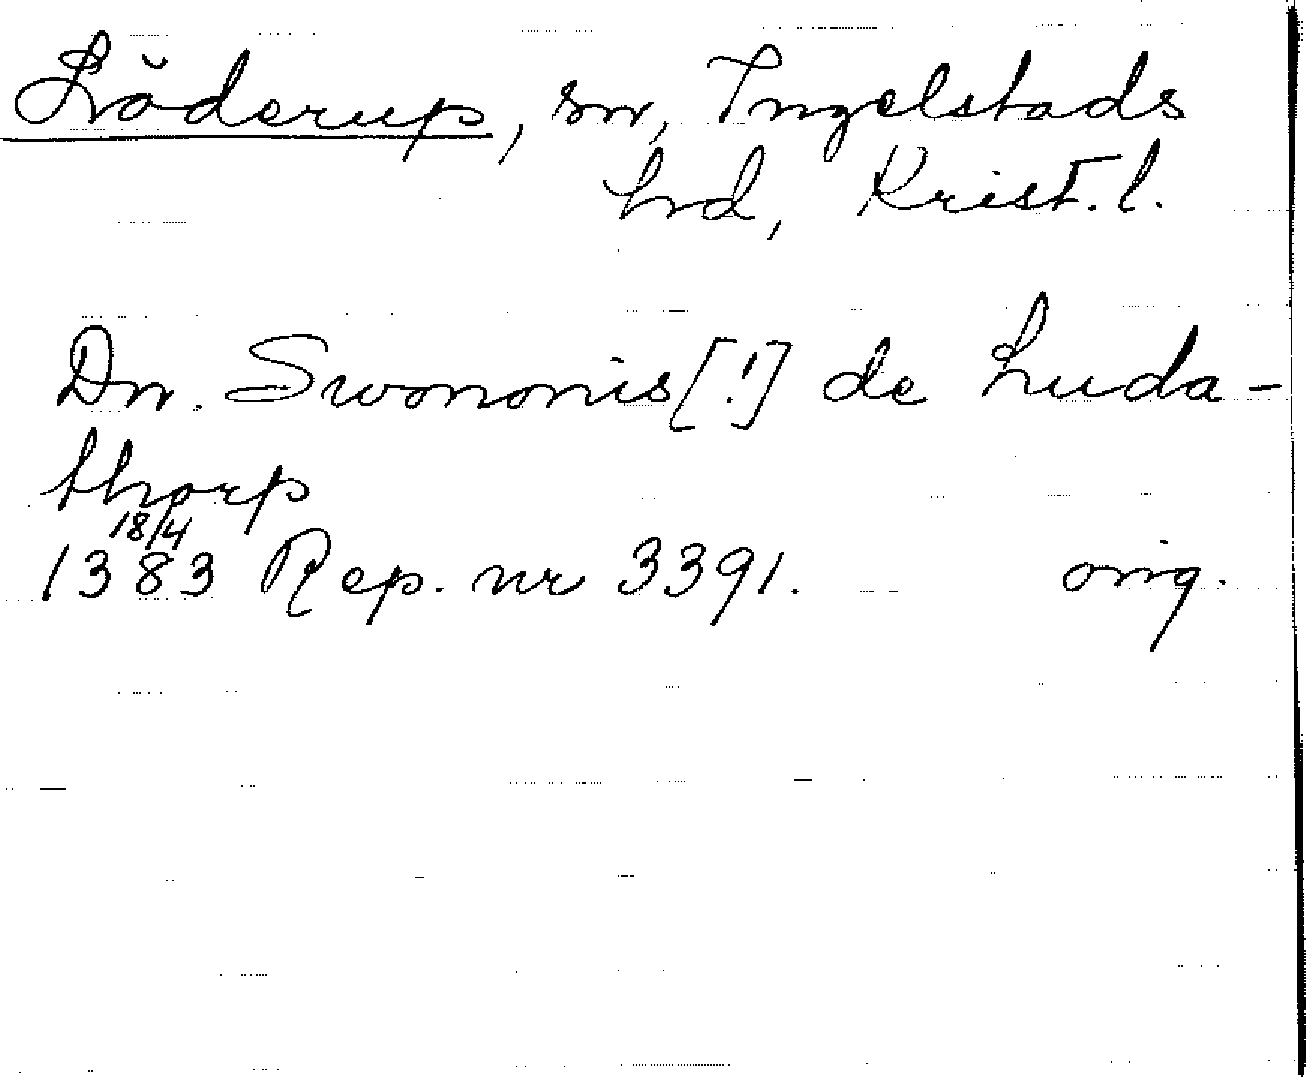 Löderup, sn, Ingelstads
hrd, Krist. l.
Dn. Swononis [!] de Luda-
thorp
18/4
1383 Rep. nr 3391. orig.